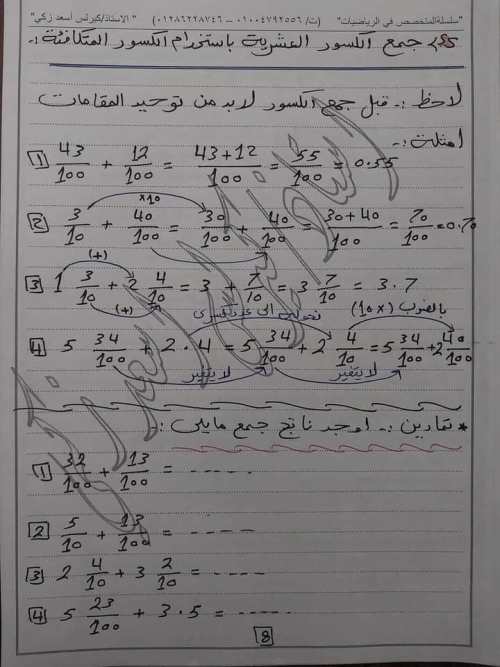 "سلسلة المتخصص في الرياضيات" (ت/ ٠١٠٠٤٧٩٢٥٥٦ – ٠١٢٨٦٢٢٨٧٤٦) "الاستاذ/كيرلس أسعد زكي"
جمع الكسور العشرية باستخدام الكسور المتكافئة :-
لاحظ :- قبل جمع الكسور لابد من توحيد المقامات
امثلة :-
1 43/100 + 12/100 = 43+12/100 = 55/100 = 0.55
×10
2 3/10 + 40/100 = 30/100 + 40/100 = 30+40/100 = 70/100 = 0.70
(+)
3 1 3/10 + 2 4/10 = 3 + 7/10 = 3 7/10 = 3.7
(+) تحويل الى عدد كسرى بالضرب (10×)
4 5 34/100 + 2.4 = 5 34/100 + 2 4/10 = 5 34/100 + 2 40/100
لا يتغير لا يتغير
* تمارين :- اوجد ناتج جمع مايلى :-
1 32/100 + 13/100 = -----
2 5/10 + 13/100 = ----
3 2 4/10 + 3 2/10 = ----
4 5 23/100 + 3.5 = -----
8